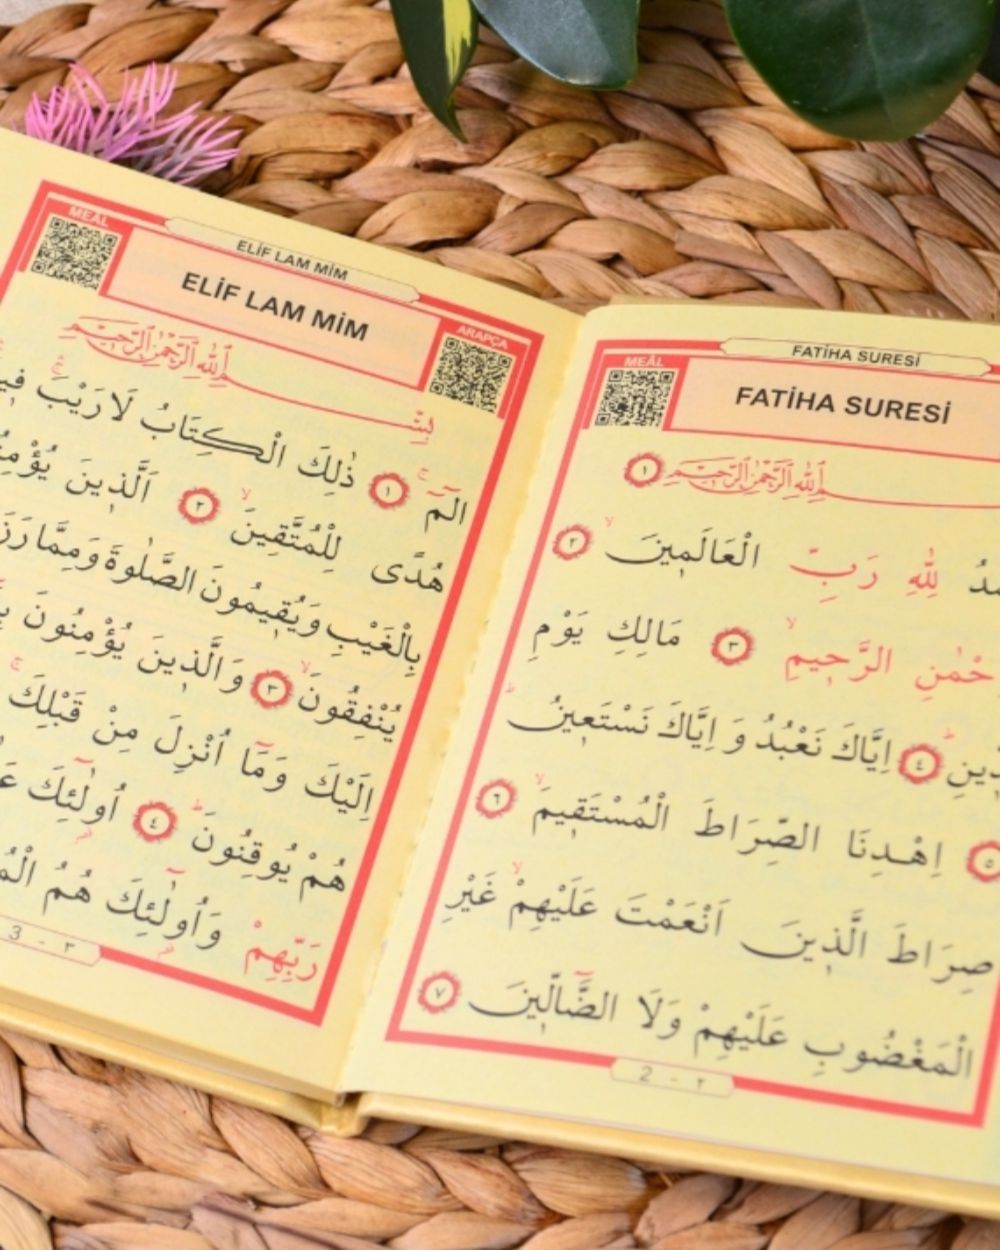 FATİHA SURESİ
MEÂL
FATİHA SURESİ
اللهِ الرَّحْمٰنِ الرَّحِيمِ ﴿١﴾
لِلّٰهِ رَبِّ الْعَالَمِينَۙ ﴿٢﴾
الرَّحِيمِۙ ﴿٣﴾ مَالِكِ يَوْمِ
﴿٤﴾ اِيَّاكَ نَعْبُدُ وَ اِيَّاكَ نَسْتَعِينُۜ
﴿٥﴾ اِهْدِنَا الصِّرَاطَ الْمُسْتَقِيمَۙ ﴿٦﴾
صِرَاطَ الَّذِينَ اَنْعَمْتَ عَلَيْهِمْۙ غَيْرِ
الْمَغْضُوبِ عَلَيْهِمْ وَلَا الضَّٓالِّينَ ﴿٧﴾
2 - ٢
ELİF LAM MİM
MEAL
ELİF LAM MİM
ARAPÇA
بِسْمِ اللهِ الرَّحْمٰنِ الرَّحِيمِ
الٓمٓۚ ﴿١﴾ ذٰلِكَ الْكِتَابُ لَا رَيْبَۚ
هُدًى لِلْمُتَّقِينَۙ ﴿٢﴾ اَلَّذِينَ
بِالْغَيْبِ وَيُقِيمُونَ الصَّلٰوةَ وَمِمَّا
يُنْفِقُونَۙ ﴿٣﴾ وَالَّذِينَ يُؤْمِنُونَ
اِلَيْكَ وَمَٓا اُنْزِلَ مِنْ قَبْلِكَۚ
هُمْ يُوقِنُونَۜ ﴿٤﴾ اُو۬لٰٓئِكَ
رَبِّهِمْ وَاُو۬لٰٓئِكَ هُمُ
3 - ٣